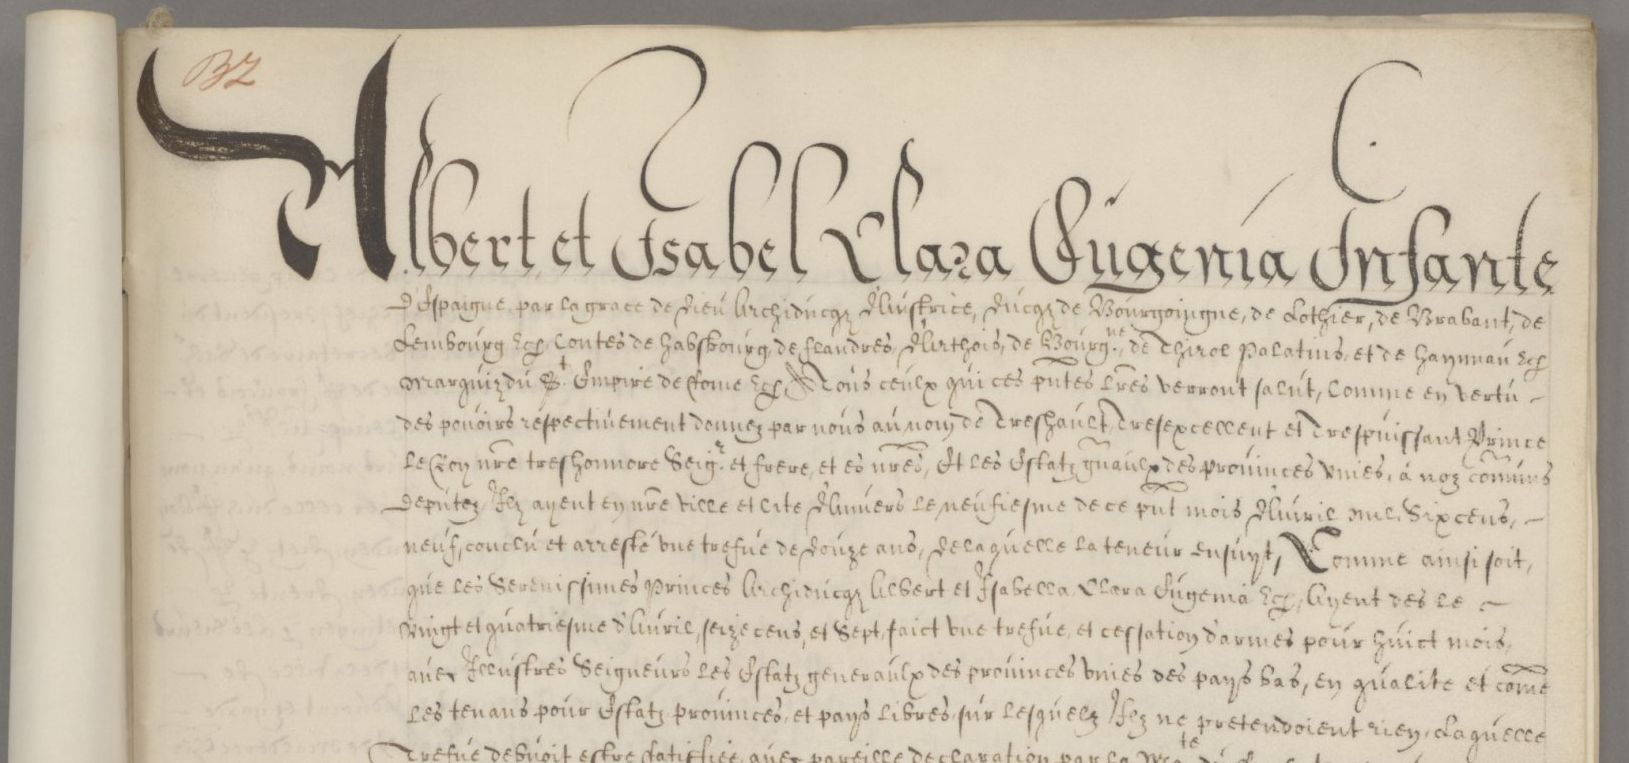 BZ
Albert et Isabel Clara Eugenia Infante
d'Espaigne, par la grace de Dieu Archiducqz d'Austrice, Ducqz de Bourgoingne, de Lothier, de Brabant, de
Lembourg &c. Contes de Habsbourg, de Flandres, d'Arthois, de Bourg.ne, de Thirol Palatins, et de Haynnau &c.
Marquiz du St. Empire de Rome &c. A Tous ceulx qui ces pntes lres verront salut, Comme en vertu
des pouoirs respectiuement donnez par nous au nom de Treshault, Tresexcellent et Trespuissant Prince
le Roy nre treshonnore Seigr. et frere, et es nres, Et les Estatz gnaulx des prouinces vnies, à noz communs
deputez, Ilz ayent en nre ville et Cite d'Anuers le neufiesme de ce pnt mois d'Auril mil Sixcens,
neuf, conclu et arresté vne trefue de Douze ans, de laquelle la teneur ensuyt, Comme ainsi soit,
que les Serenissimes Princes Archiducqz Albert et Isabella Clara Eugenia &c. Ayent des le
vingt et quatriesme d'Auril, seizecens, et Sept, faict vne trefue, et cessation d'armes pour huict mois,
auec Illustres Seigneurs les Estatz generaulx des prouinces vnies des pays bas, en qualite et come
les tenans pour Estatz, prouinces, et pays libres, sur lesquelz Ilz ne pretendoient rien, Laquelle
Trefue debuoit estre Ratiffiée, auec pareille declaration par la Mate du